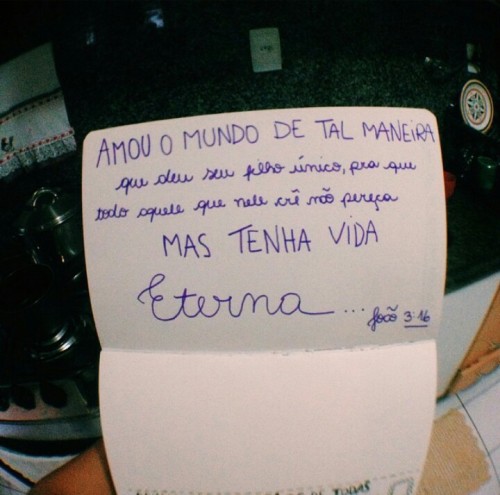 AMOU O MUNDO DE TAL MANEIRA
que deu seu filho único, pra que
todo aquele que nele crê não pereça
MAS TENHA VIDA
Eterna...
João 3:16